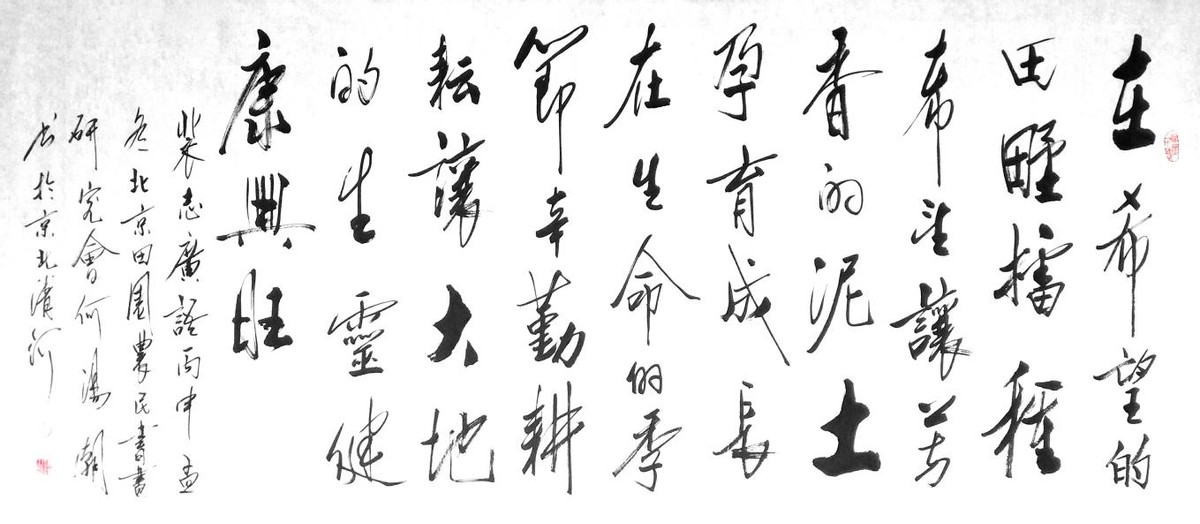 在希望的
田野播種
希望讓芳
香的泥土
孕育成長
在生命的季
節辛勤耕
耘讓大地
的生靈健
康興旺
裴志廣語丙申孟
冬北京田園農民書畫
研究會何湯潮
書於京北潢河